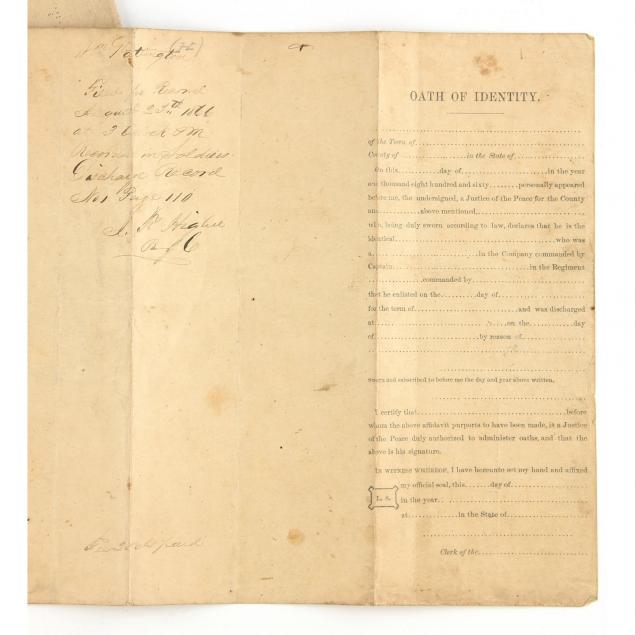 Filed for Record
August 25th 1866
at 3 Oclock P M
Recorded in Soldiers
Discharge Record
No 1 Page 110
OATH OF IDENTITY.
of the Town of
County of in the State of
On this day of in the year
one thousand eight hundred and sixty personally appeared
before me, the undersigned, a Justice of the Peace for the County
and above mentioned,
who, being duly sworn according to law, declares that he is the
identical who was
a in the Company commanded by
Captain in the Regiment
commanded by
that he enlisted on the day of
for the term of and was discharged
at on the day
of by reason of
Sworn and subscribed to before me the day and year above written.
I certify that before
whom the above affidavit purports to have been made, is a Justice
of the Peace duly authorized to administer oaths, and that the
above is his signature.
IN WITNESS WHEREOF, I have hereunto set my hand and affixed
my official seal, this day of
L. S. in the year
at in the State of
Clerk of the